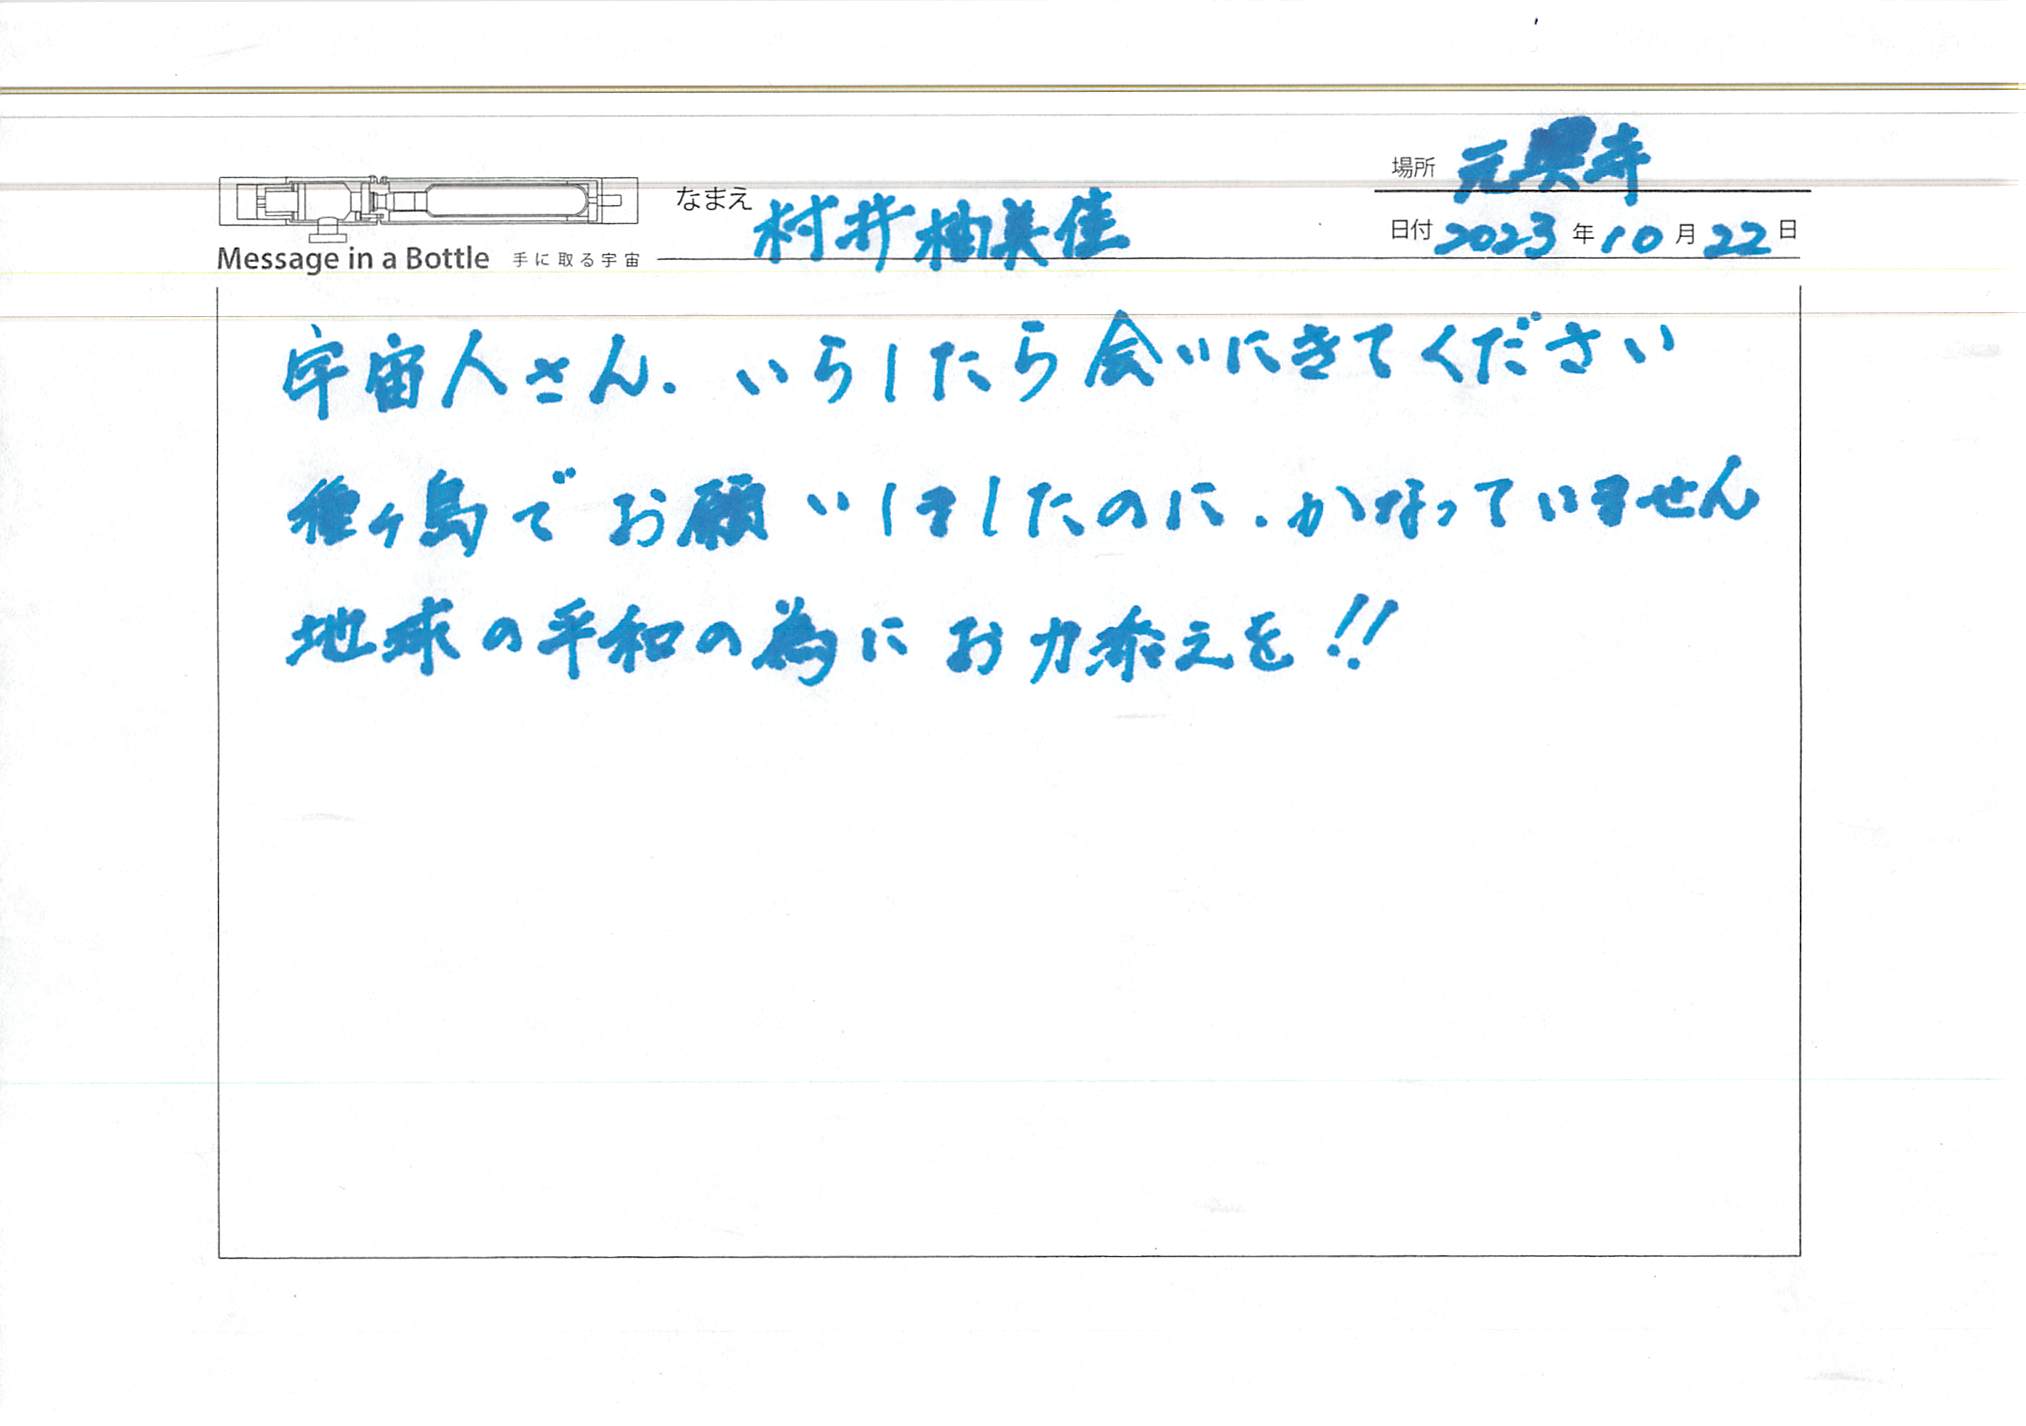 場所 元興寺
なまえ 村井柚美佳
日付 2023年10月22日
Message in a Bottle 手に取る宇宙
宇宙人さん、いらしたら会いにきてください
種ヶ島でお願いしましたのに、かなっていません
地球の平和の為にお力添えを!!